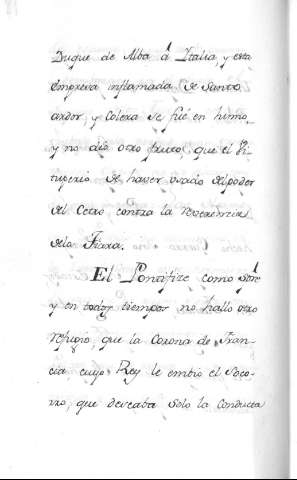 Duque de Alba á Italia, y esta
Empresa inflamada de Santo
ardor, y Colera se fué en humo,
y no dio otro fruto, que el Vi-
tuperio de haver usado del poder
del Cetro contra la Reverencia
dela Tiara.
El Pontifice como
y en todos tiempos no hallo otro
refugio, que la Corona de Fran-
cia cuyo Rey le embio el Soco-
rro, que deseaba solo la conducta